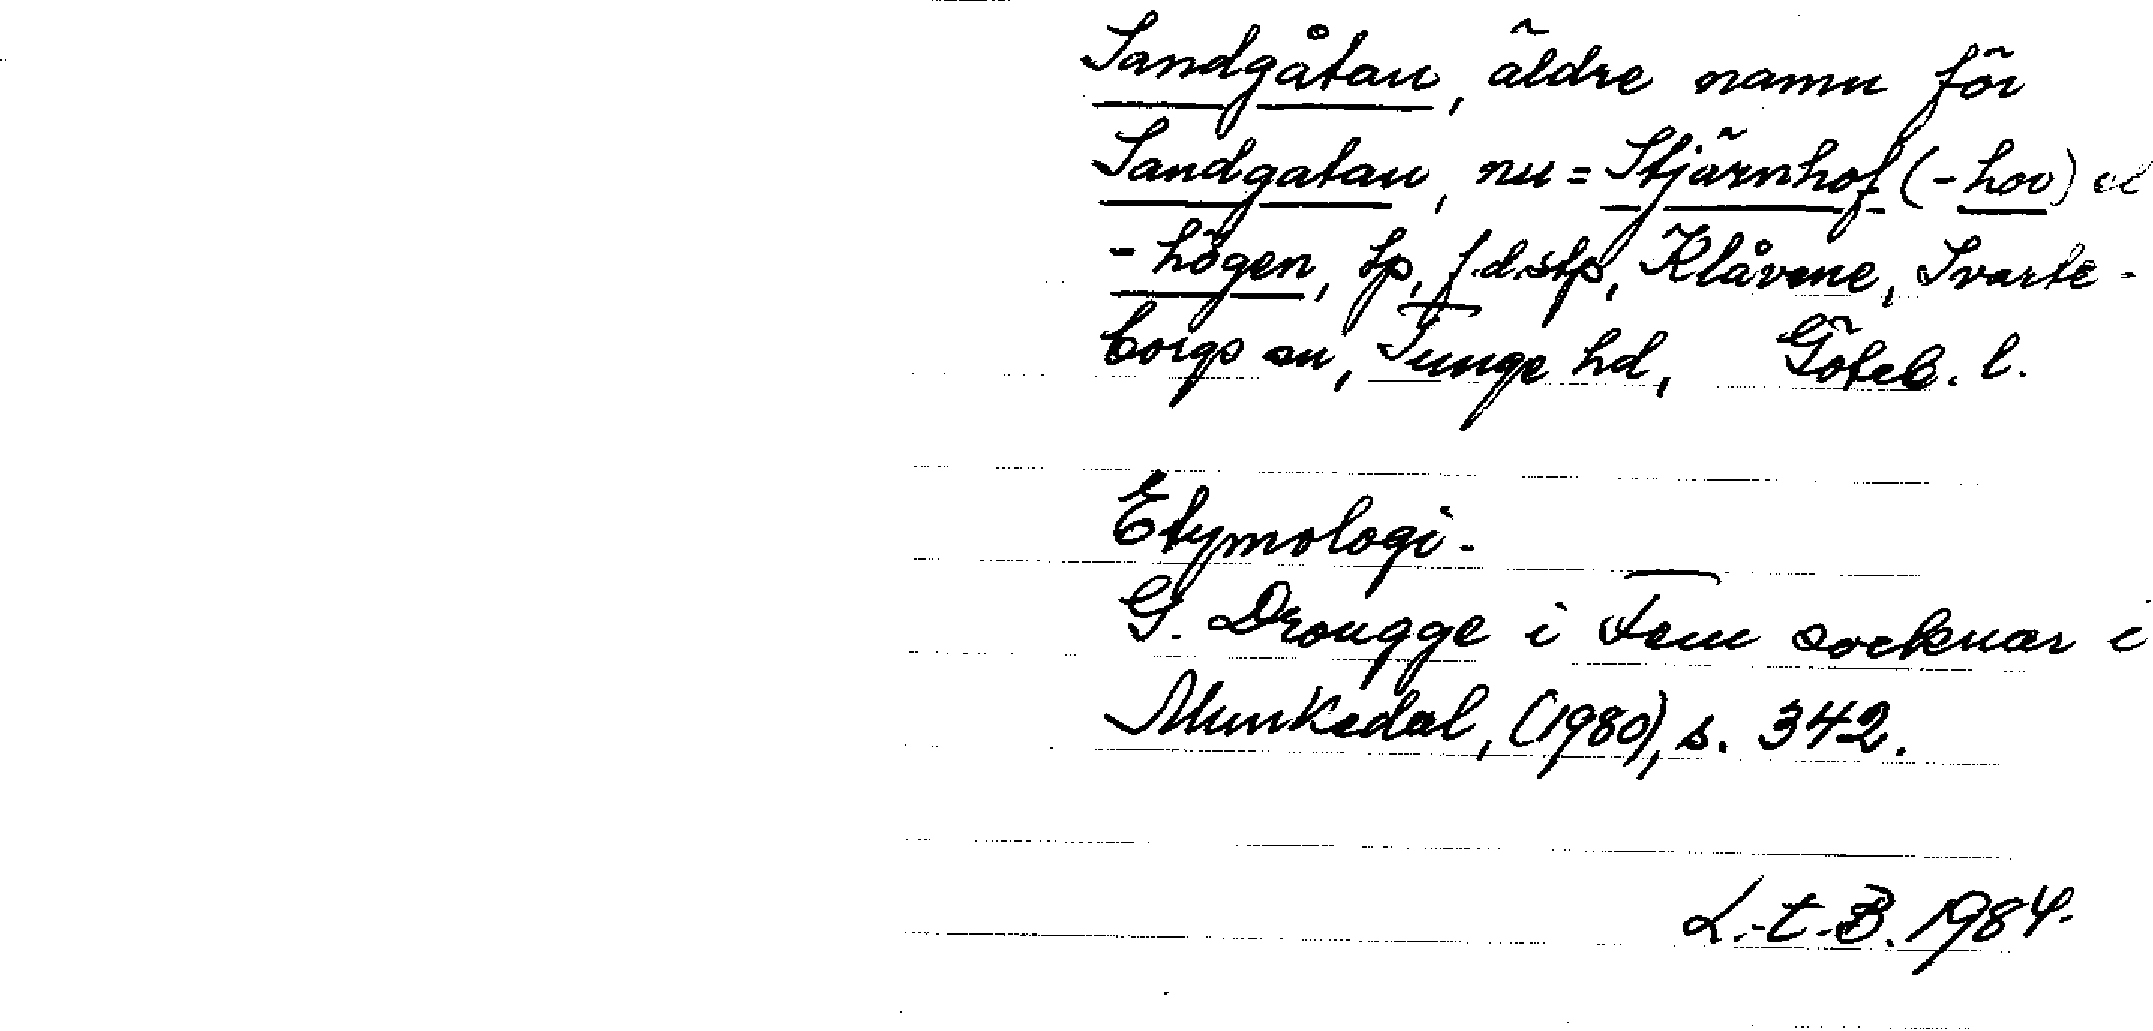 Sandgåtan, äldre namn för
Sandgatan, nu = Stjärnhof (-hov) el
-högen, tp, f.d. stp, Klåvene, Svarte-
borgs sn, Tunge hd, Göteb. l.
Etymologi.
G. Drougge i Fem socknar i
Munkedal, (1980), s. 342.
L.-t.-B. 1984.